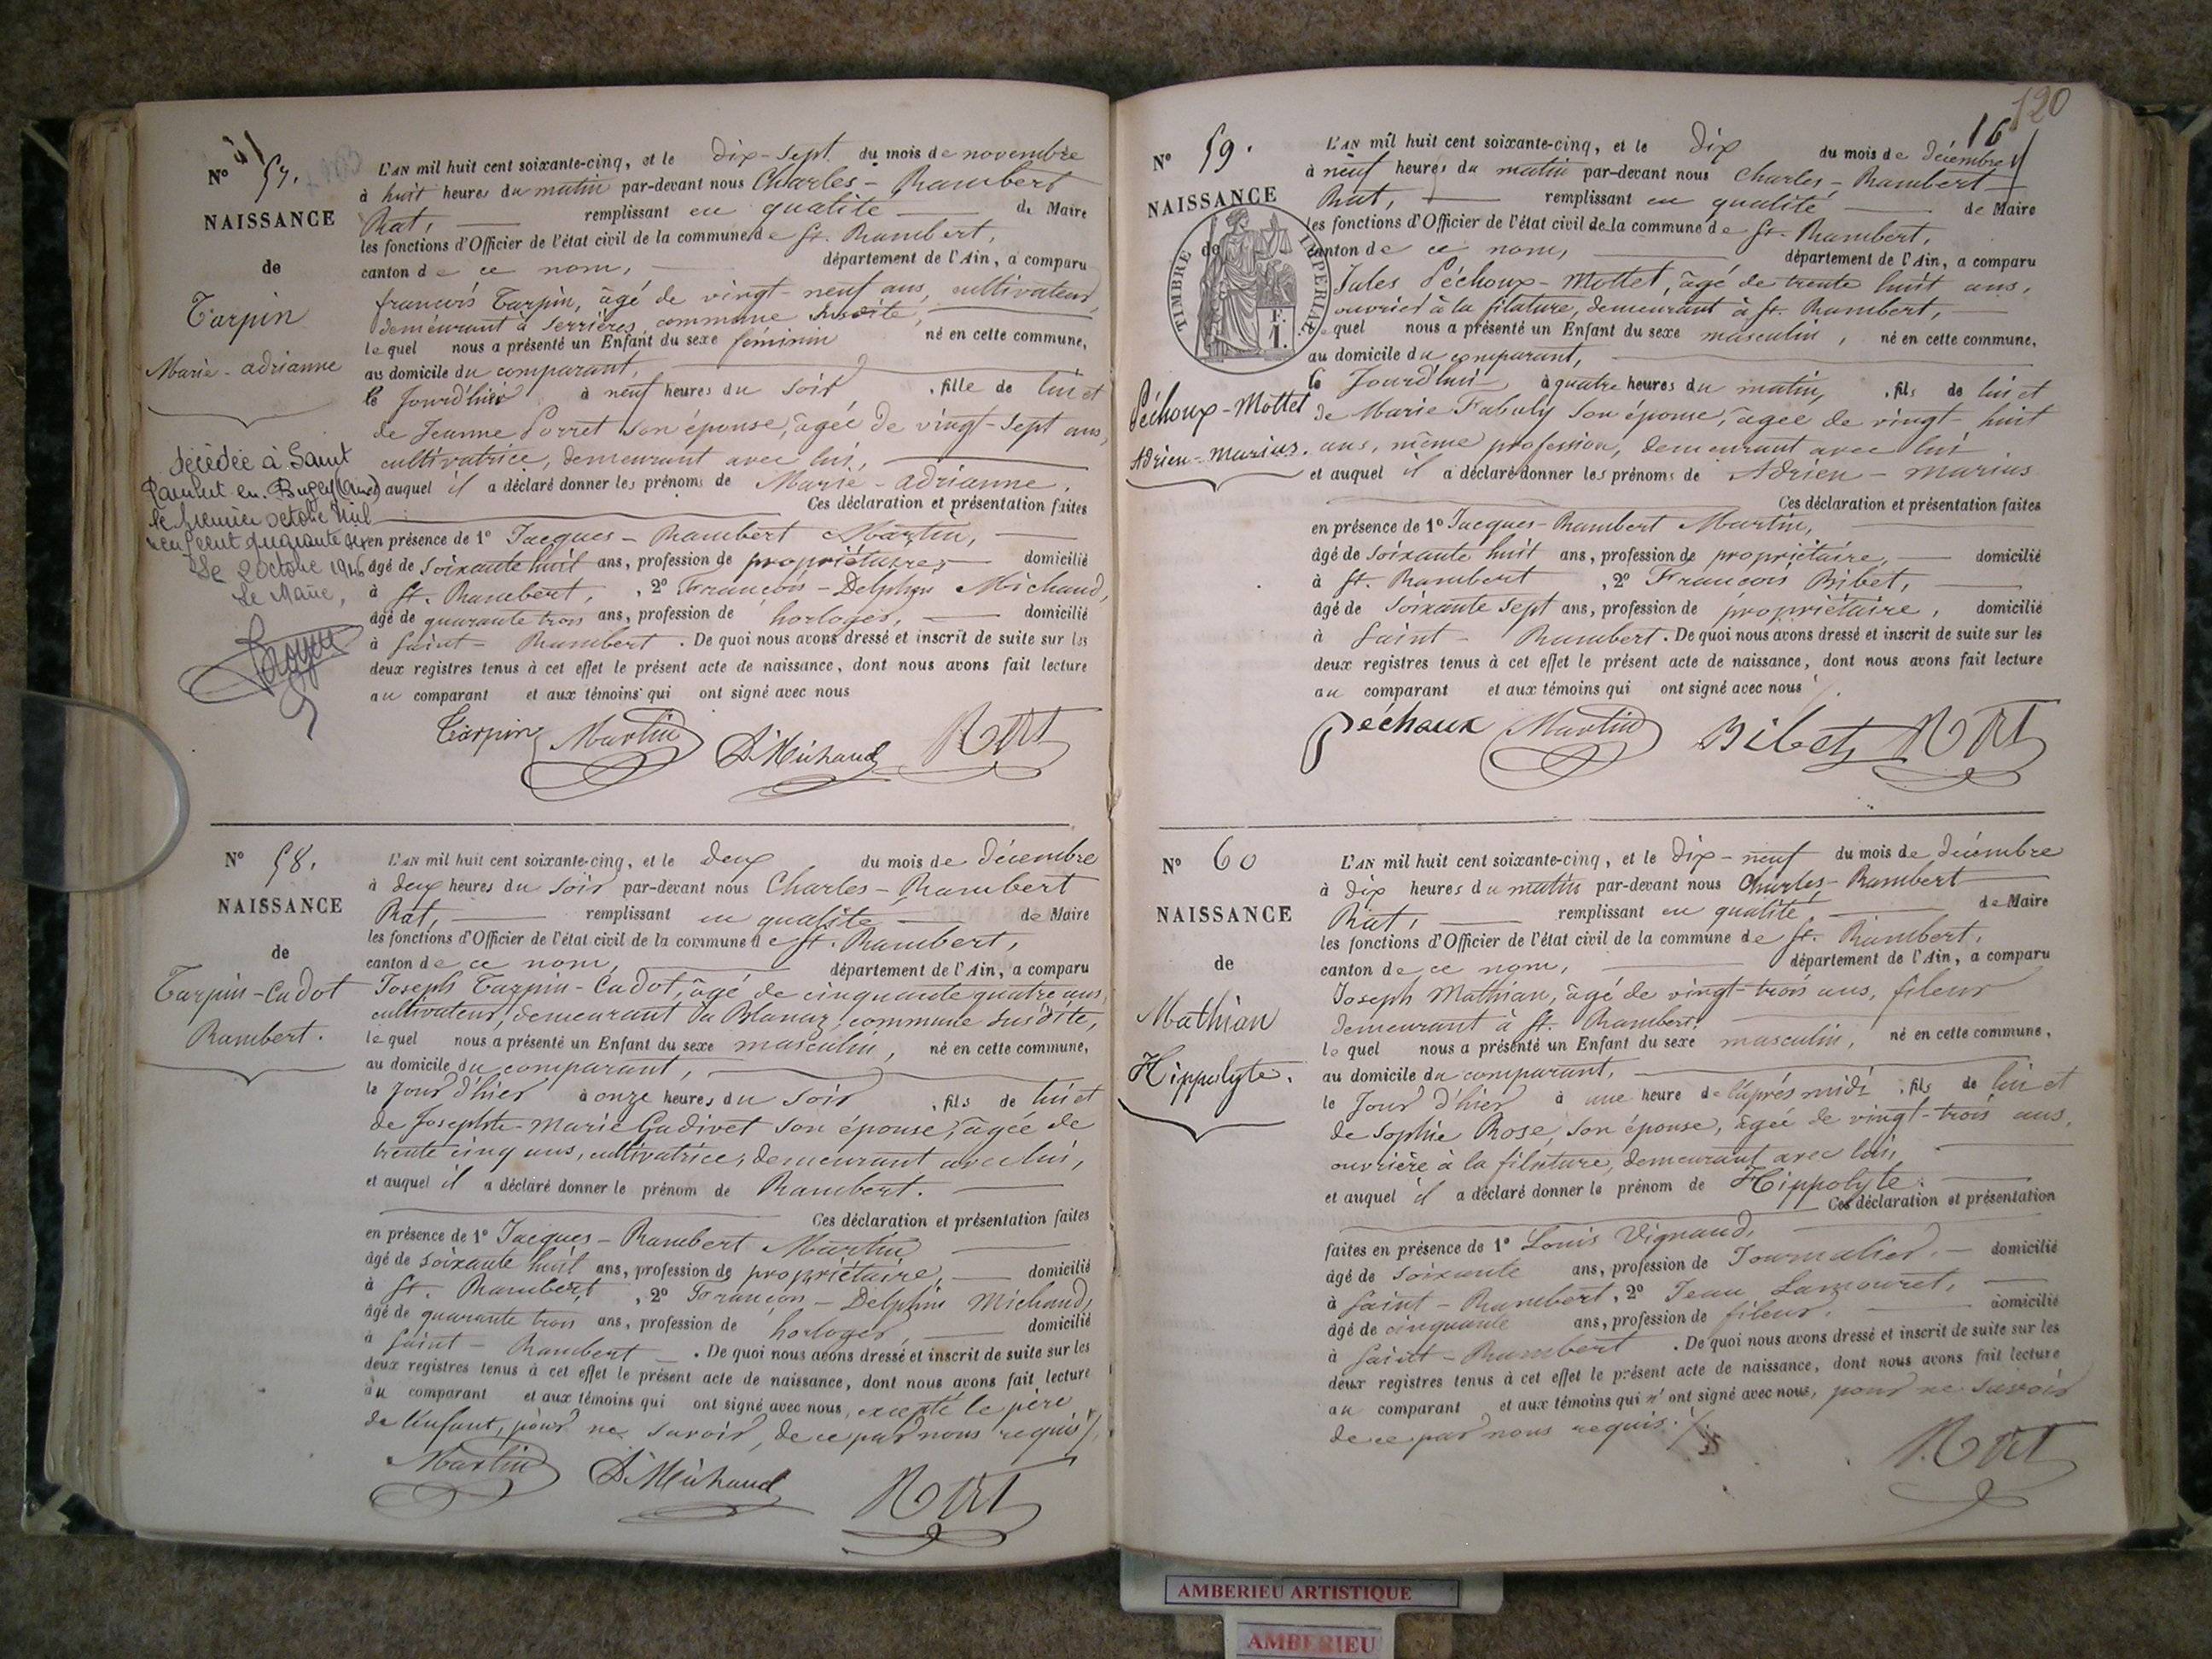 N° 57.
NAISSANCE
de
Tarpin
Marie-adrianne
décédée à Saint
Rambert en-Bugey (Ain)
le premier octobre mil
neuf cent quarante six
Le 2 octobre 1946
Le Maire,
L'AN mil huit cent soixante-cinq, et le dix-sept du mois de novembre
à huit heures du matin par-devant nous Charles-Rambert
Rat, remplissant en qualité de Maire
les fonctions d'Officier de l'état civil de la commune de St. Rambert,
canton de ce nom, département de l'Ain, a comparu
françois Tarpin, âgé de vingt-neuf ans, cultivateur,
demeurant à Serrières commune susdite,
lequel nous a présenté un Enfant du sexe féminin né en cette commune,
au domicile du comparant,
le Jour d'hier à neuf heures du soir, fille de lui et
de Jeanne Porret son épouse, âgée de vingt-sept ans,
cultivatrice, demeurant avec lui,
auquel il a déclaré donner les prénoms de Marie-adrianne.
Ces déclaration et présentation faites
en présence de 1° Jacques-Rambert Martin,
âgé de soixante huit ans, profession de propriétaire, domicilié
à St. Rambert, 2° François-Delphin Michaud,
âgé de quarante trois ans, profession de horloger, domicilié
à Saint-Rambert. De quoi nous avons dressé et inscrit de suite sur les
deux registres tenus à cet effet le présent acte de naissance, dont nous avons fait lecture
au comparant et aux témoins qui ont signé avec nous
Tarpin Martin D. Michaud Rat
N° 58.
NAISSANCE
de
Tarpin-Cadot
Rambert.
L'AN mil huit cent soixante-cinq, et le deux du mois de décembre
à deux heures du soir par-devant nous Charles-Rambert
Rat, remplissant en qualité de Maire
les fonctions d'Officier de l'état civil de la commune de St. Rambert,
canton de ce nom, département de l'Ain, a comparu
Joseph Tarpin-Cadot, âgé de cinquante quatre ans,
cultivateur, demeurant à Blanaz, commune susdite,
lequel nous a présenté un Enfant du sexe masculin, né en cette commune,
au domicile du comparant,
le jour d'hier à onze heures du soir, fils de lui et
de Josephte-Marie Gadivet son épouse, âgée de
trente cinq ans, cultivatrice, demeurant avec lui,
et auquel il a déclaré donner le prénom de Rambert.
Ces déclaration et présentation faites
en présence de 1° Jacques-Rambert Martin
âgé de soixante huit ans, profession de propriétaire, domicilié
à St. Rambert, 2° François-Delphin Michaud,
âgé de quarante trois ans, profession de horloger, domicilié
à Saint-Rambert. De quoi nous avons dressé et inscrit de suite sur les
deux registres tenus à cet effet le présent acte de naissance, dont nous avons fait lecture
au comparant et aux témoins qui ont signé avec nous, excepté le père
de l'enfant, pour ne savoir, de ce par nous requis
Martin D. Michaud Rat
120
16
N° 59.
NAISSANCE
de
TIMBRE IMPERIAL
1 F.
Péchoux-Mottet
Adrien-Marius.
L'AN mil huit cent soixante-cinq, et le dix du mois de décembre
à neuf heures du matin par-devant nous Charles-Rambert
Rat, remplissant en qualité de Maire
les fonctions d'Officier de l'état civil de la commune de St. Rambert,
canton de ce nom, département de l'Ain, a comparu
Jules Péchoux-Mottet, âgé de trente huit ans,
ouvrier à la filature, demeurant à St. Rambert,
lequel nous a présenté un Enfant du sexe masculin, né en cette commune,
au domicile du comparant,
le Jourd'hui à quatre heures du matin, fils de lui et
de Marie Fabuly son épouse, âgée de vingt-huit
ans, même profession, demeurant avec lui
et auquel il a déclaré donner les prénoms de Adrien-Marius
Ces déclaration et présentation faites
en présence de 1° Jacques-Rambert Martin,
âgé de soixante huit ans, profession de propriétaire, domicilié
à St. Rambert, 2° François Bibet,
âgé de soixante sept ans, profession de propriétaire, domicilié
à Saint-Rambert. De quoi nous avons dressé et inscrit de suite sur les
deux registres tenus à cet effet le présent acte de naissance, dont nous avons fait lecture
au comparant et aux témoins qui ont signé avec nous
Péchoux Martin Bibet Rat
N° 60
NAISSANCE
de
Mathian
Hippolyte.
L'AN mil huit cent soixante-cinq, et le dix-neuf du mois de décembre
à dix heures du matin par-devant nous Charles-Rambert
Rat, remplissant en qualité de Maire
les fonctions d'Officier de l'état civil de la commune de St. Rambert,
canton de ce nom, département de l'Ain, a comparu
Joseph Mathian, âgé de vingt-trois ans, fileur
demeurant à St. Rambert.
lequel nous a présenté un Enfant du sexe masculin, né en cette commune,
au domicile du comparant,
le Jour d'hier à une heure de l'après midi, fils de lui et
de Sophie Rose, son épouse, âgée de vingt-trois ans,
ouvrière à la filature, demeurant avec lui,
et auquel il a déclaré donner le prénom de Hippolyte.
Ces déclaration et présentation
faites en présence de 1° Louis Vignaud,
âgé de soixante ans, profession de Journalier, domicilié
à Saint-Rambert, 2° Jean Lamouret,
âgé de cinquante ans, profession de fileur, domicilié
à Saint-Rambert. De quoi nous avons dressé et inscrit de suite sur les
deux registres tenus à cet effet le présent acte de naissance, dont nous avons fait lecture
au comparant et aux témoins qui n'ont signé avec nous, pour ne savoir
de ce par nous requis.
Rat
AMBERIEU ARTISTIQUE
AMBERIEU